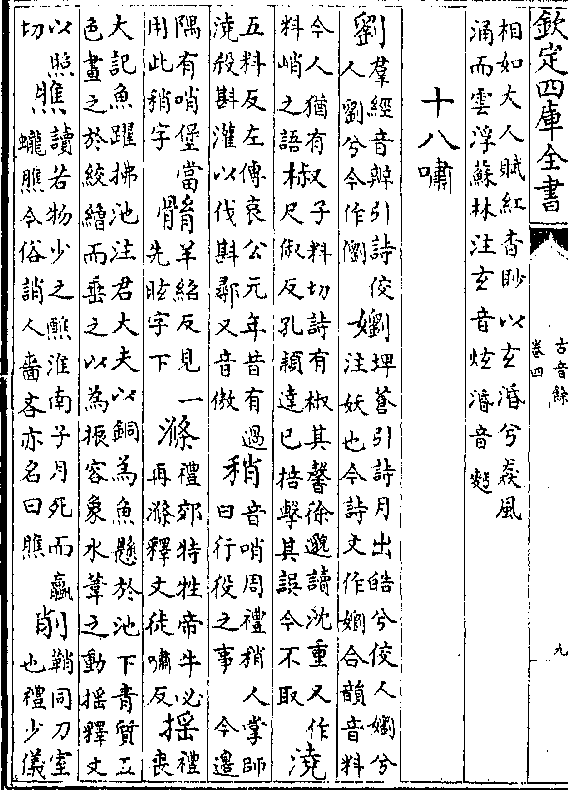 欽定四庫全書
古音餘
卷四
九
相如大人賦紅杳眇以玄湣兮猋風
涌而雲浮蘇林注玄音炫湣音麪
十八嘯
劉
羣經音辨引詩佼
人劉兮今作懰
嬼
埤蒼引詩月出皓兮佼人嬼兮
注妖也今詩文作懰合韻音料
今人猶有
料峭之語
椒
子料切詩有椒其馨徐邈讀沈重又作
尺俶反孔穎達已掊擊其誤今不取
澆
五料反左傳哀公元年昔有過
澆殺斟灌以伐斟鄩又音傲
稍
音哨周禮稍人掌師
曰行役之事 今邉
隅有哨堡當
用此稍字
羊紹反見一
先眩字下
滌
禮郊特牲帝牛必
再滌釋文徒嘯反
揺
禮喪
大記魚躍拂池注君大夫以銅為魚懸於池下青質五
色畫之於絞繒而垂之以為振容象水草之動揺釋文
以照
切
膲
讀若物少之醮淮南子月死而蠃
蠬膲今俗誚人嗇吝亦名曰膲
削
鞘同刀室
也禮少儀